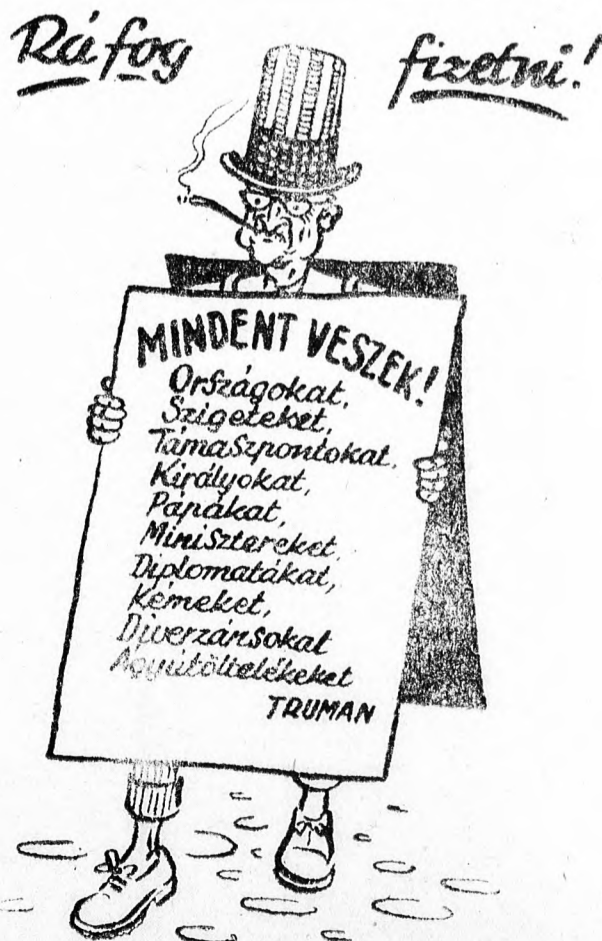 Rá fog fizetni!
MINDENT VESZEK!
Országokat,
Szigeteket,
Támaszpontokat,
Királyokat,
Pápákat,
Minisztereket,
Diplomatákat,
Kémeket,
Diverzánsokat
Ágyútöltelékeket
TRUMAN